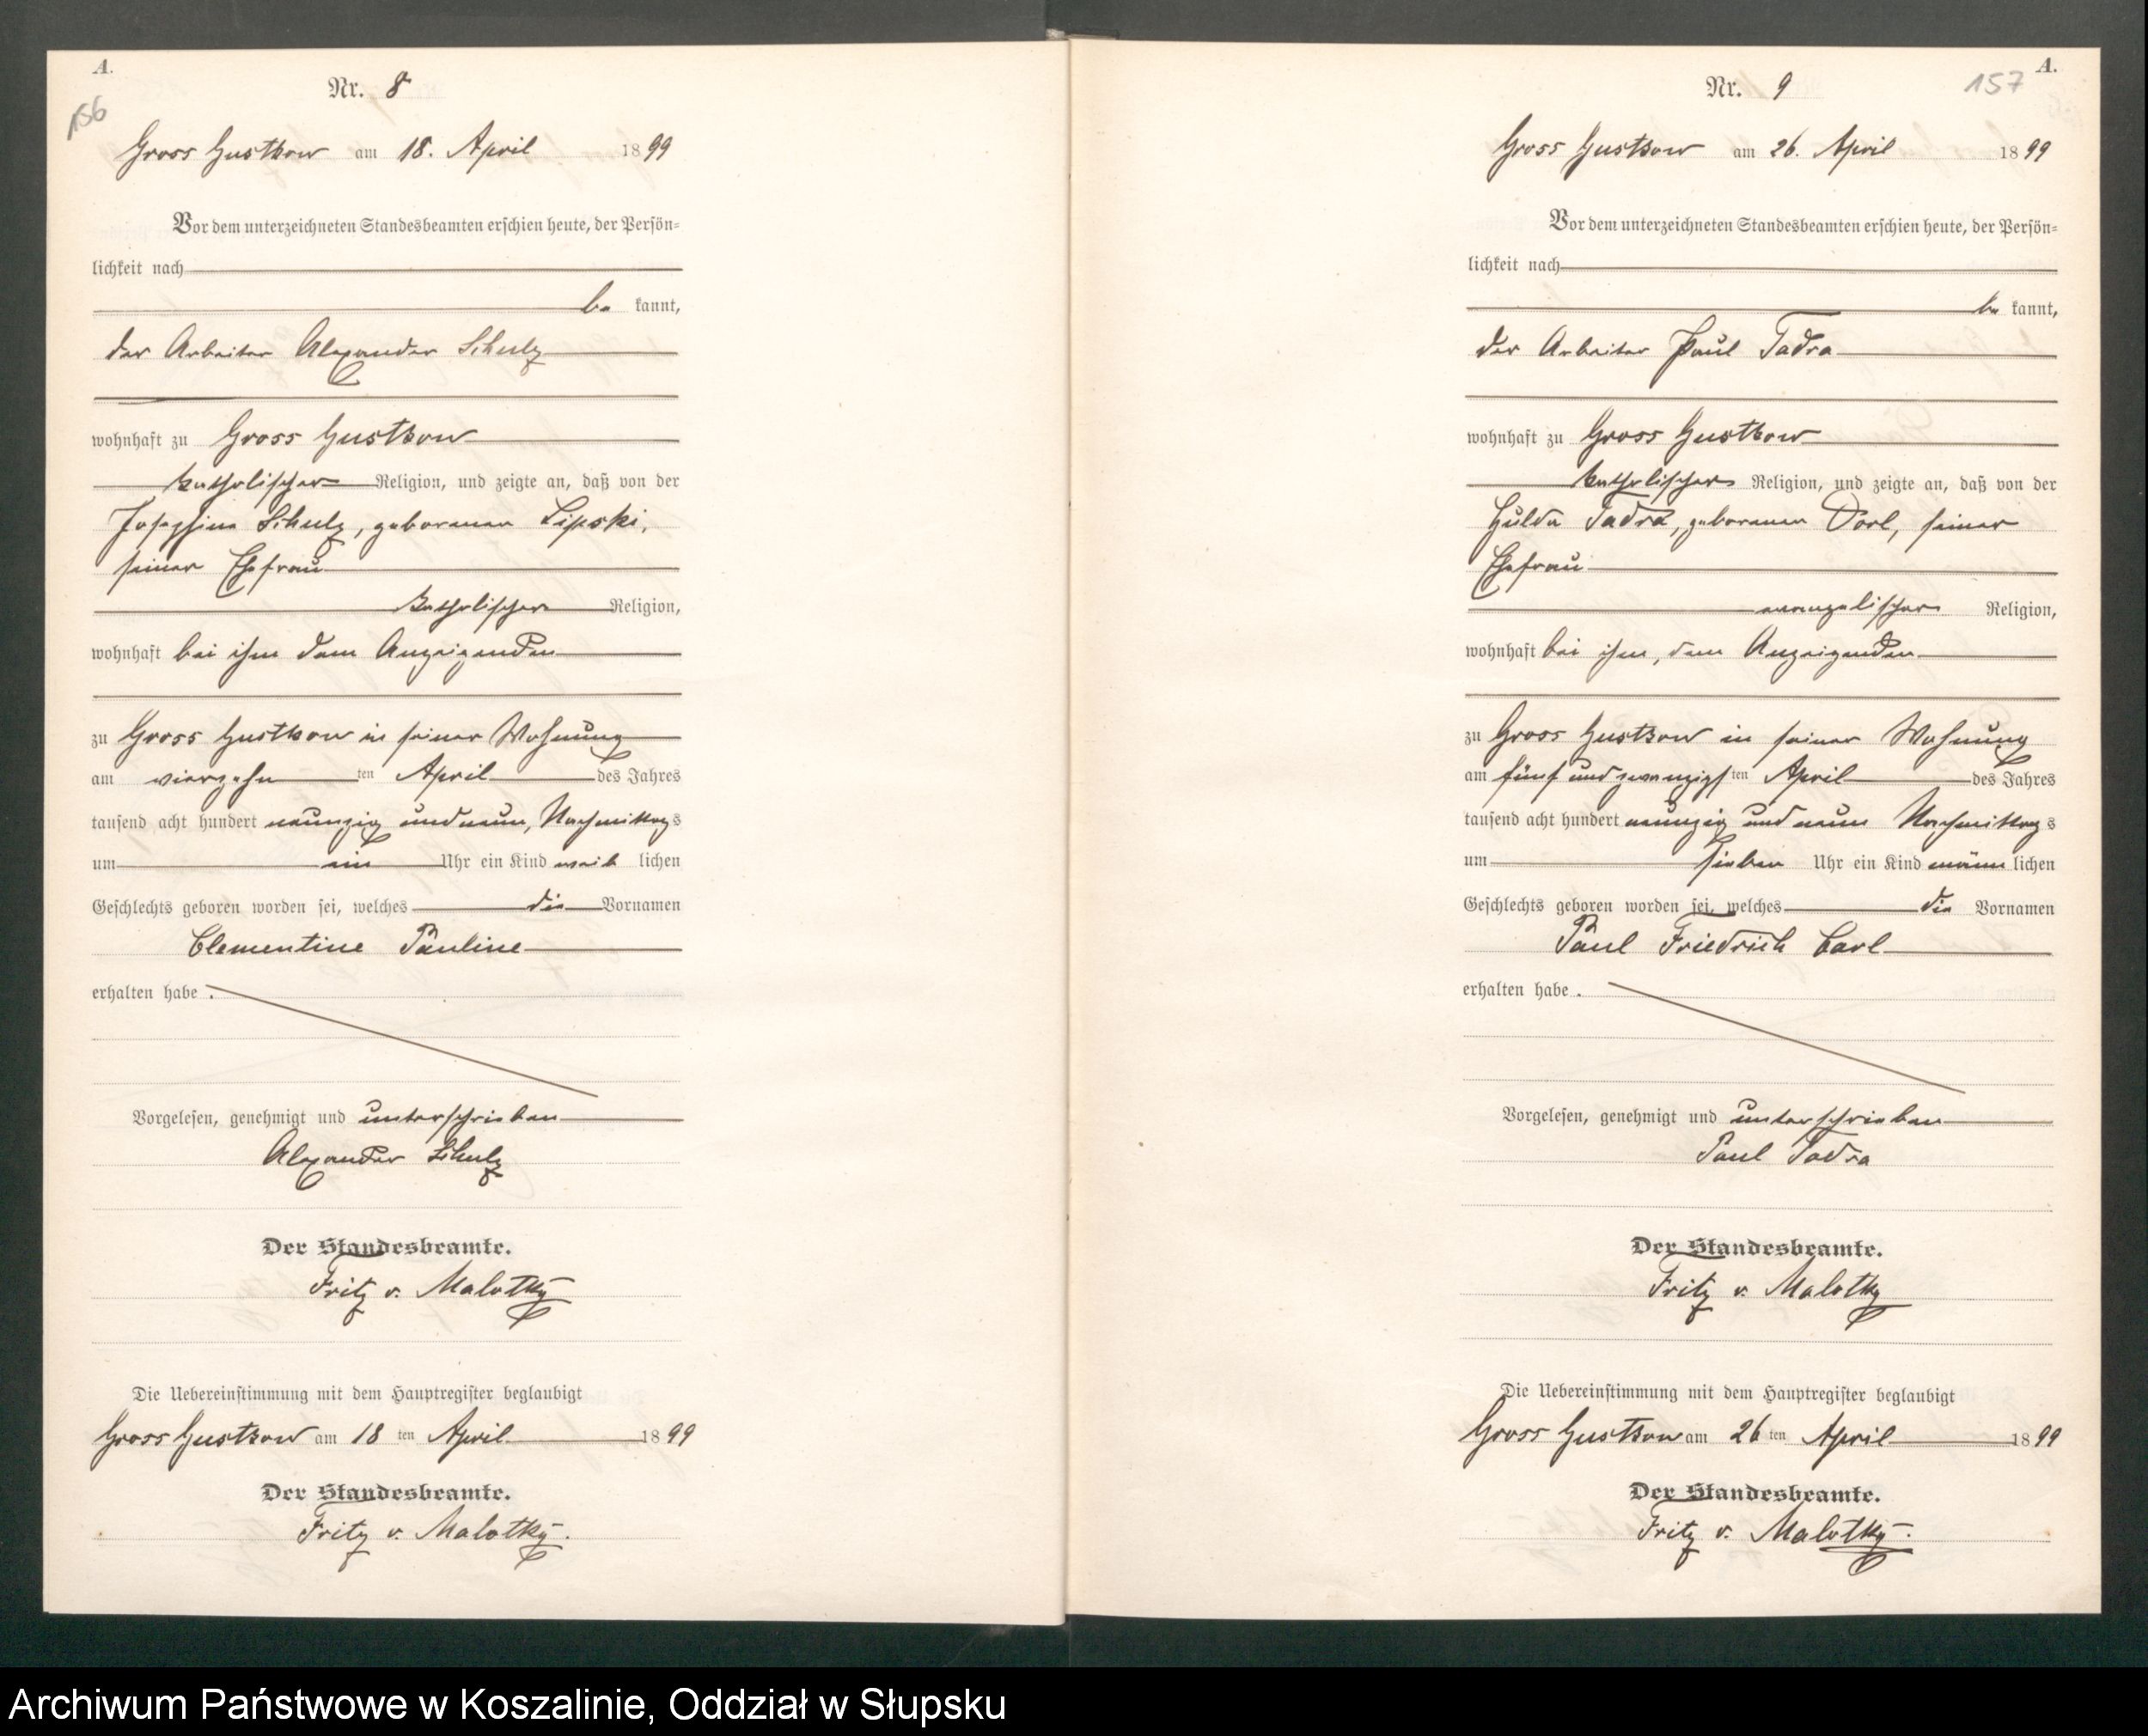 A.
156
Nr. 8
Gross Gustkow am 18. April 1899
Vor dem unterzeichneten Standesbeamten erschien heute, der Persön-
lichkeit nach
be kannt,
der Arbeiter Alexander Schulz
wohnhaft zu Gross Gustkow
katholischer Religion, und zeigte an, daß von der
Josephine Schulz, geborenen Lipski,
seiner Ehefrau
katholischer Religion,
wohnhaft bei ihm dem Anzeigenden
zu Gross Gustkow in seiner Wohnung
am vierzehn ten April des Jahres
tausend acht hundert neunzig und neun, Nachmittags
um ein Uhr ein Kind weib lichen
Geschlechts geboren worden sei, welches die Vornamen
Clementine Pauline
erhalten habe .
Vorgelesen, genehmigt und unterschrieben
Alexander Schulz
Der Standesbeamte.
Fritz v. Malotky
Die Uebereinstimmung mit dem Hauptregister beglaubigt
Gross Gustkow am 18 ten April 1899
Der Standesbeamte.
Fritz v. Malotky.
A.
157
Nr. 9
Gross Gustkow am 26. April 1899
Vor dem unterzeichneten Standesbeamten erschien heute, der Persön-
lichkeit nach
be kannt,
der Arbeiter Paul Tadra
wohnhaft zu Gross Gustkow
katholischer Religion, und zeigte an, daß von der
Hulda Tadra, geborenen Dorl, seiner
Ehefrau
evangelischer Religion,
wohnhaft bei ihm, dem Anzeigenden
zu Gross Gustkow in seiner Wohnung
am fünf und zwanzigs ten April des Jahres
tausend acht hundert neunzig und neun Nachmittags
um sieben Uhr ein Kind männ lichen
Geschlechts geboren worden sei, welches die Vornamen
Paul Friedrich Carl
erhalten habe .
Vorgelesen, genehmigt und unterschrieben
Paul Tadra
Der Standesbeamte.
Fritz v. Malotky
Die Uebereinstimmung mit dem Hauptregister beglaubigt
Gross Gustkow am 26 ten April 1899
Der Standesbeamte.
Fritz v. Malotky.
Archiwum Państwowe w Koszalinie, Oddział w Słupsku